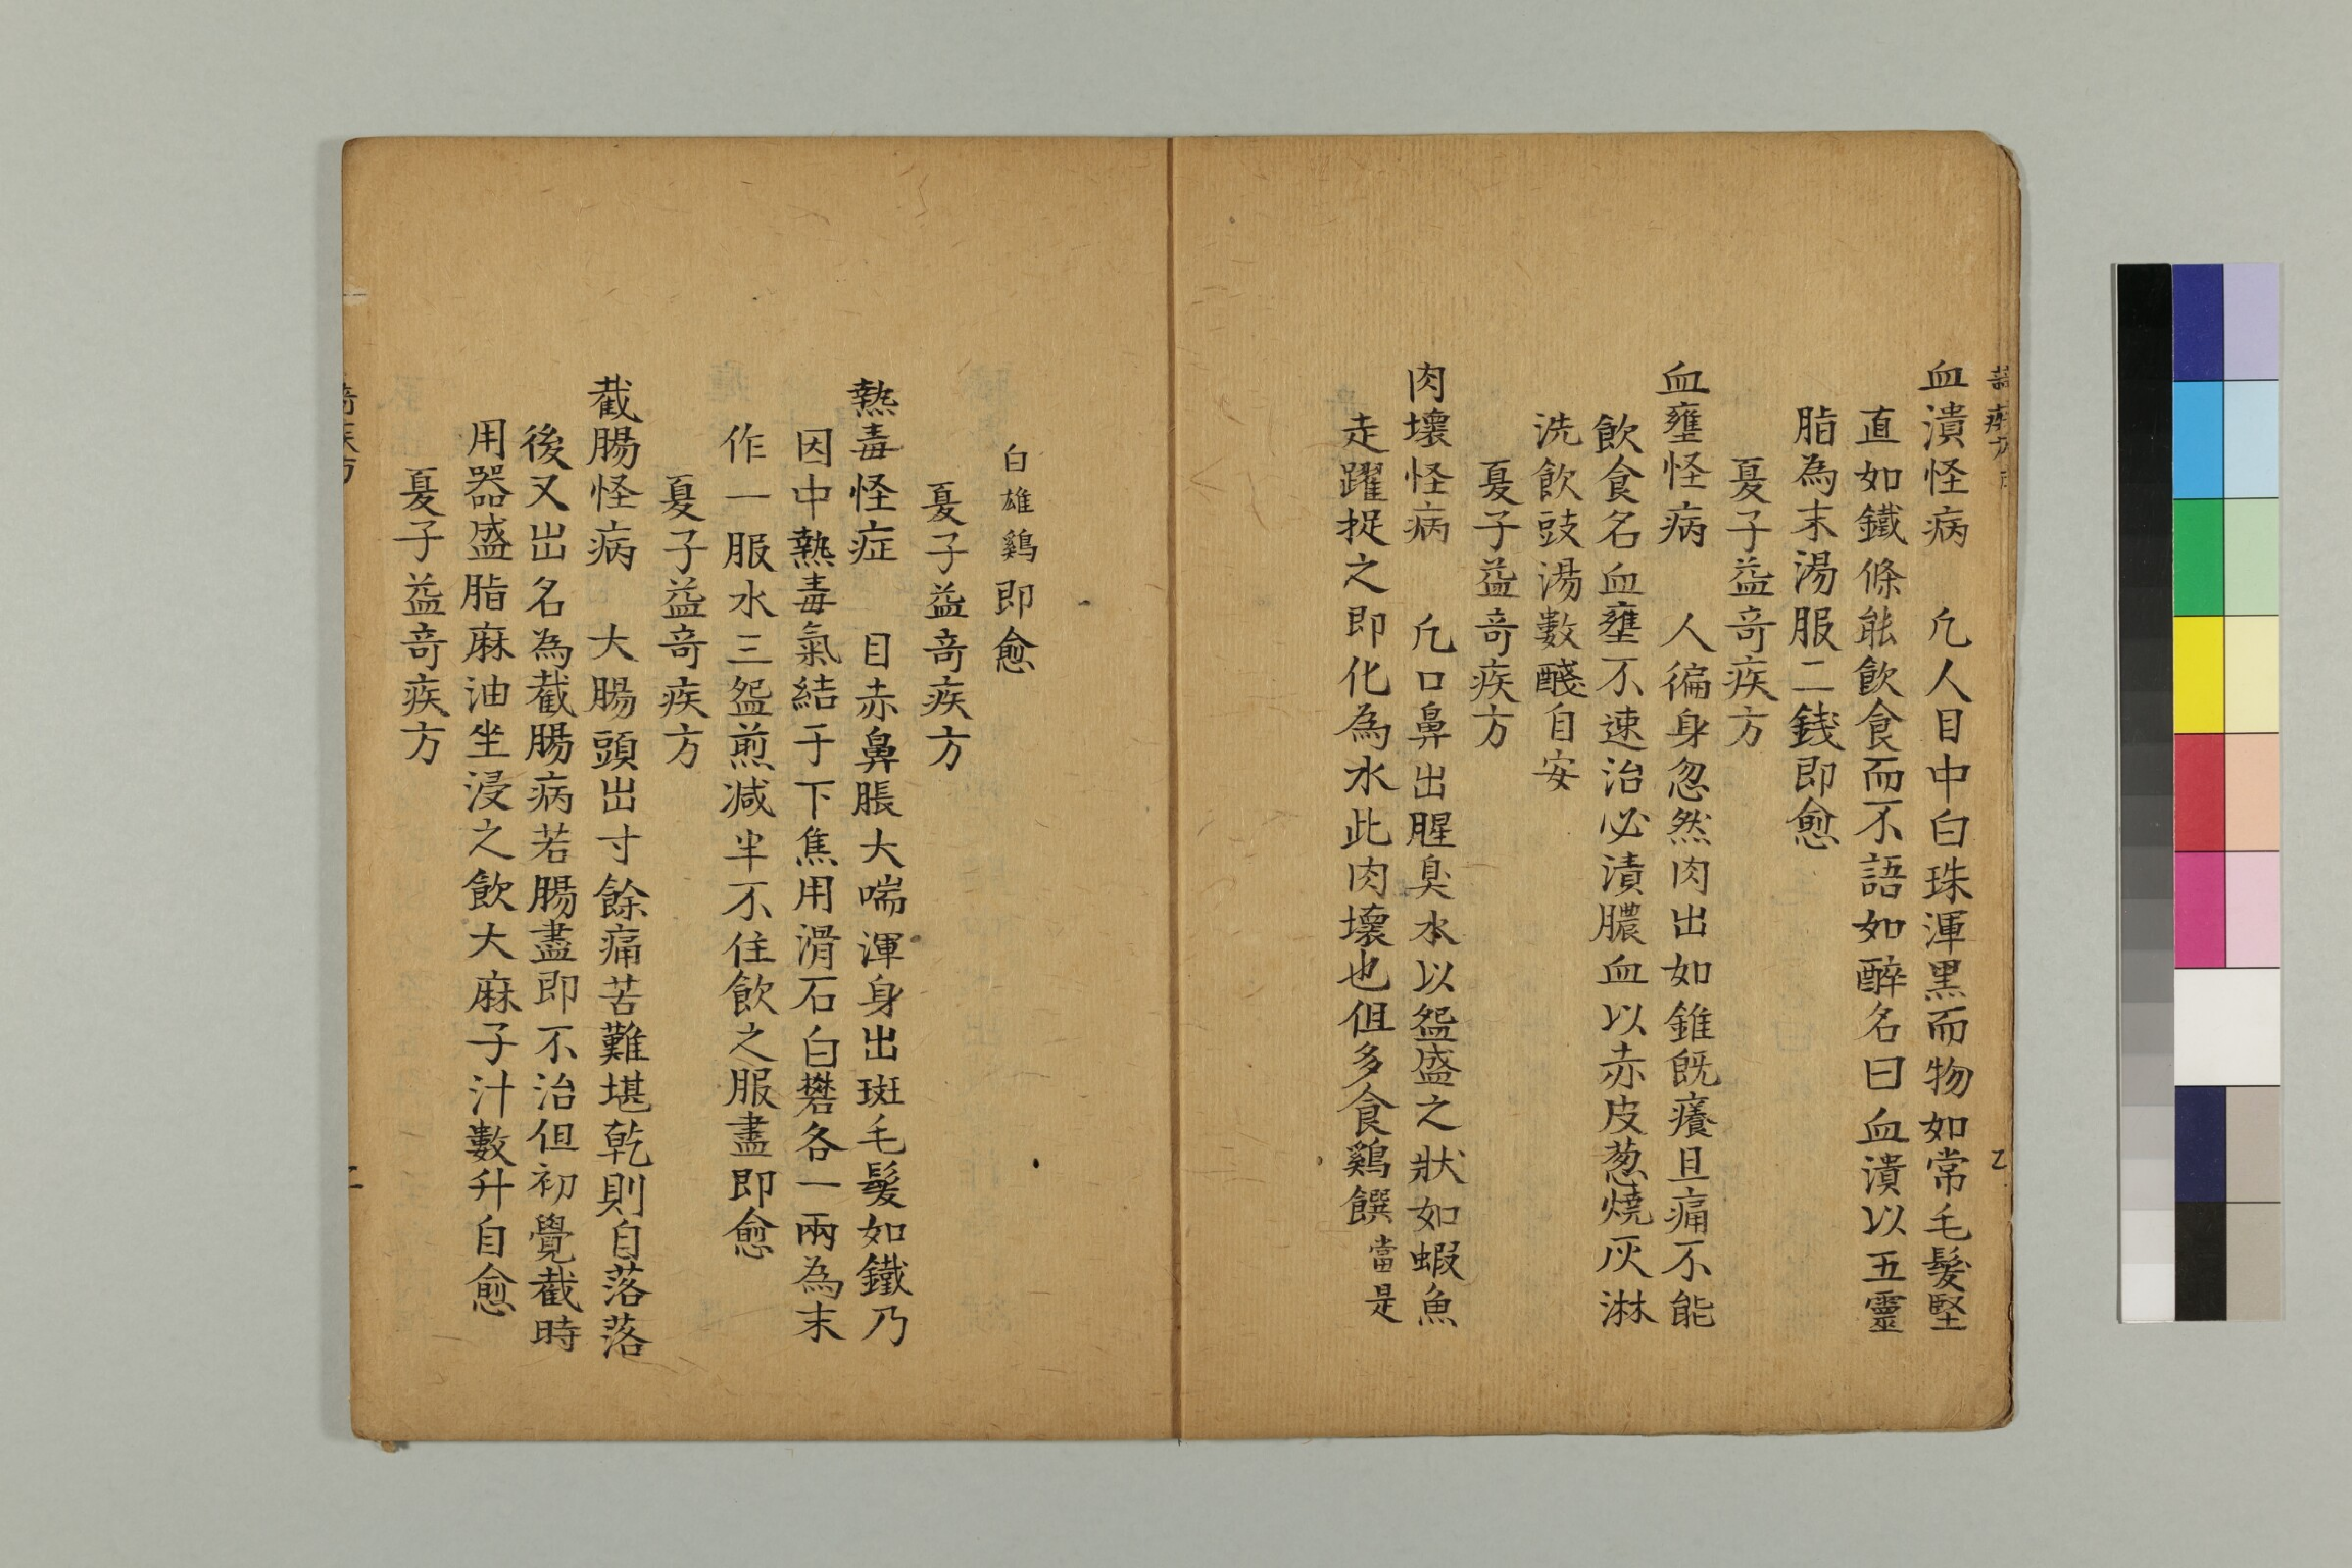 血潰怪病　凢人目中白珠渾黒而物如常毛髮堅
直如鐵條能飲食而不語如醉名曰血潰以五靈
脂為末湯服二銭即愈
夏子益竒疾方
血壅怪病　人徧身忽然肉出如錐旣癢且痛不能
飲食名血壅不速治必漬膿血以赤皮葱燒灰淋
洗飲豉湯數醆自安
夏子益竒疾方
肉壞怪病　凢口鼻出腥臭水以盌盛之狀如蝦魚
走躍捉之即化為水此肉壞也但多食鷄饌當是
白雄鷄即愈
夏子益竒疾方
熱毒怪症　目赤鼻脹大喘渾身出斑毛髮如鐵乃
因中熱毒氣結于下焦用滑石白礬各一兩為末
作一服水三盌煎减半不住飲之服盡即愈
夏子益竒疾方
截腸怪病　大腸頭出寸餘痛苦難堪乾則自落落
後又出名為截腸病若腸盡即不治但初覺截時
用器盛脂麻油坐浸之飲大麻子汁數升自愈
夏子益竒疾方